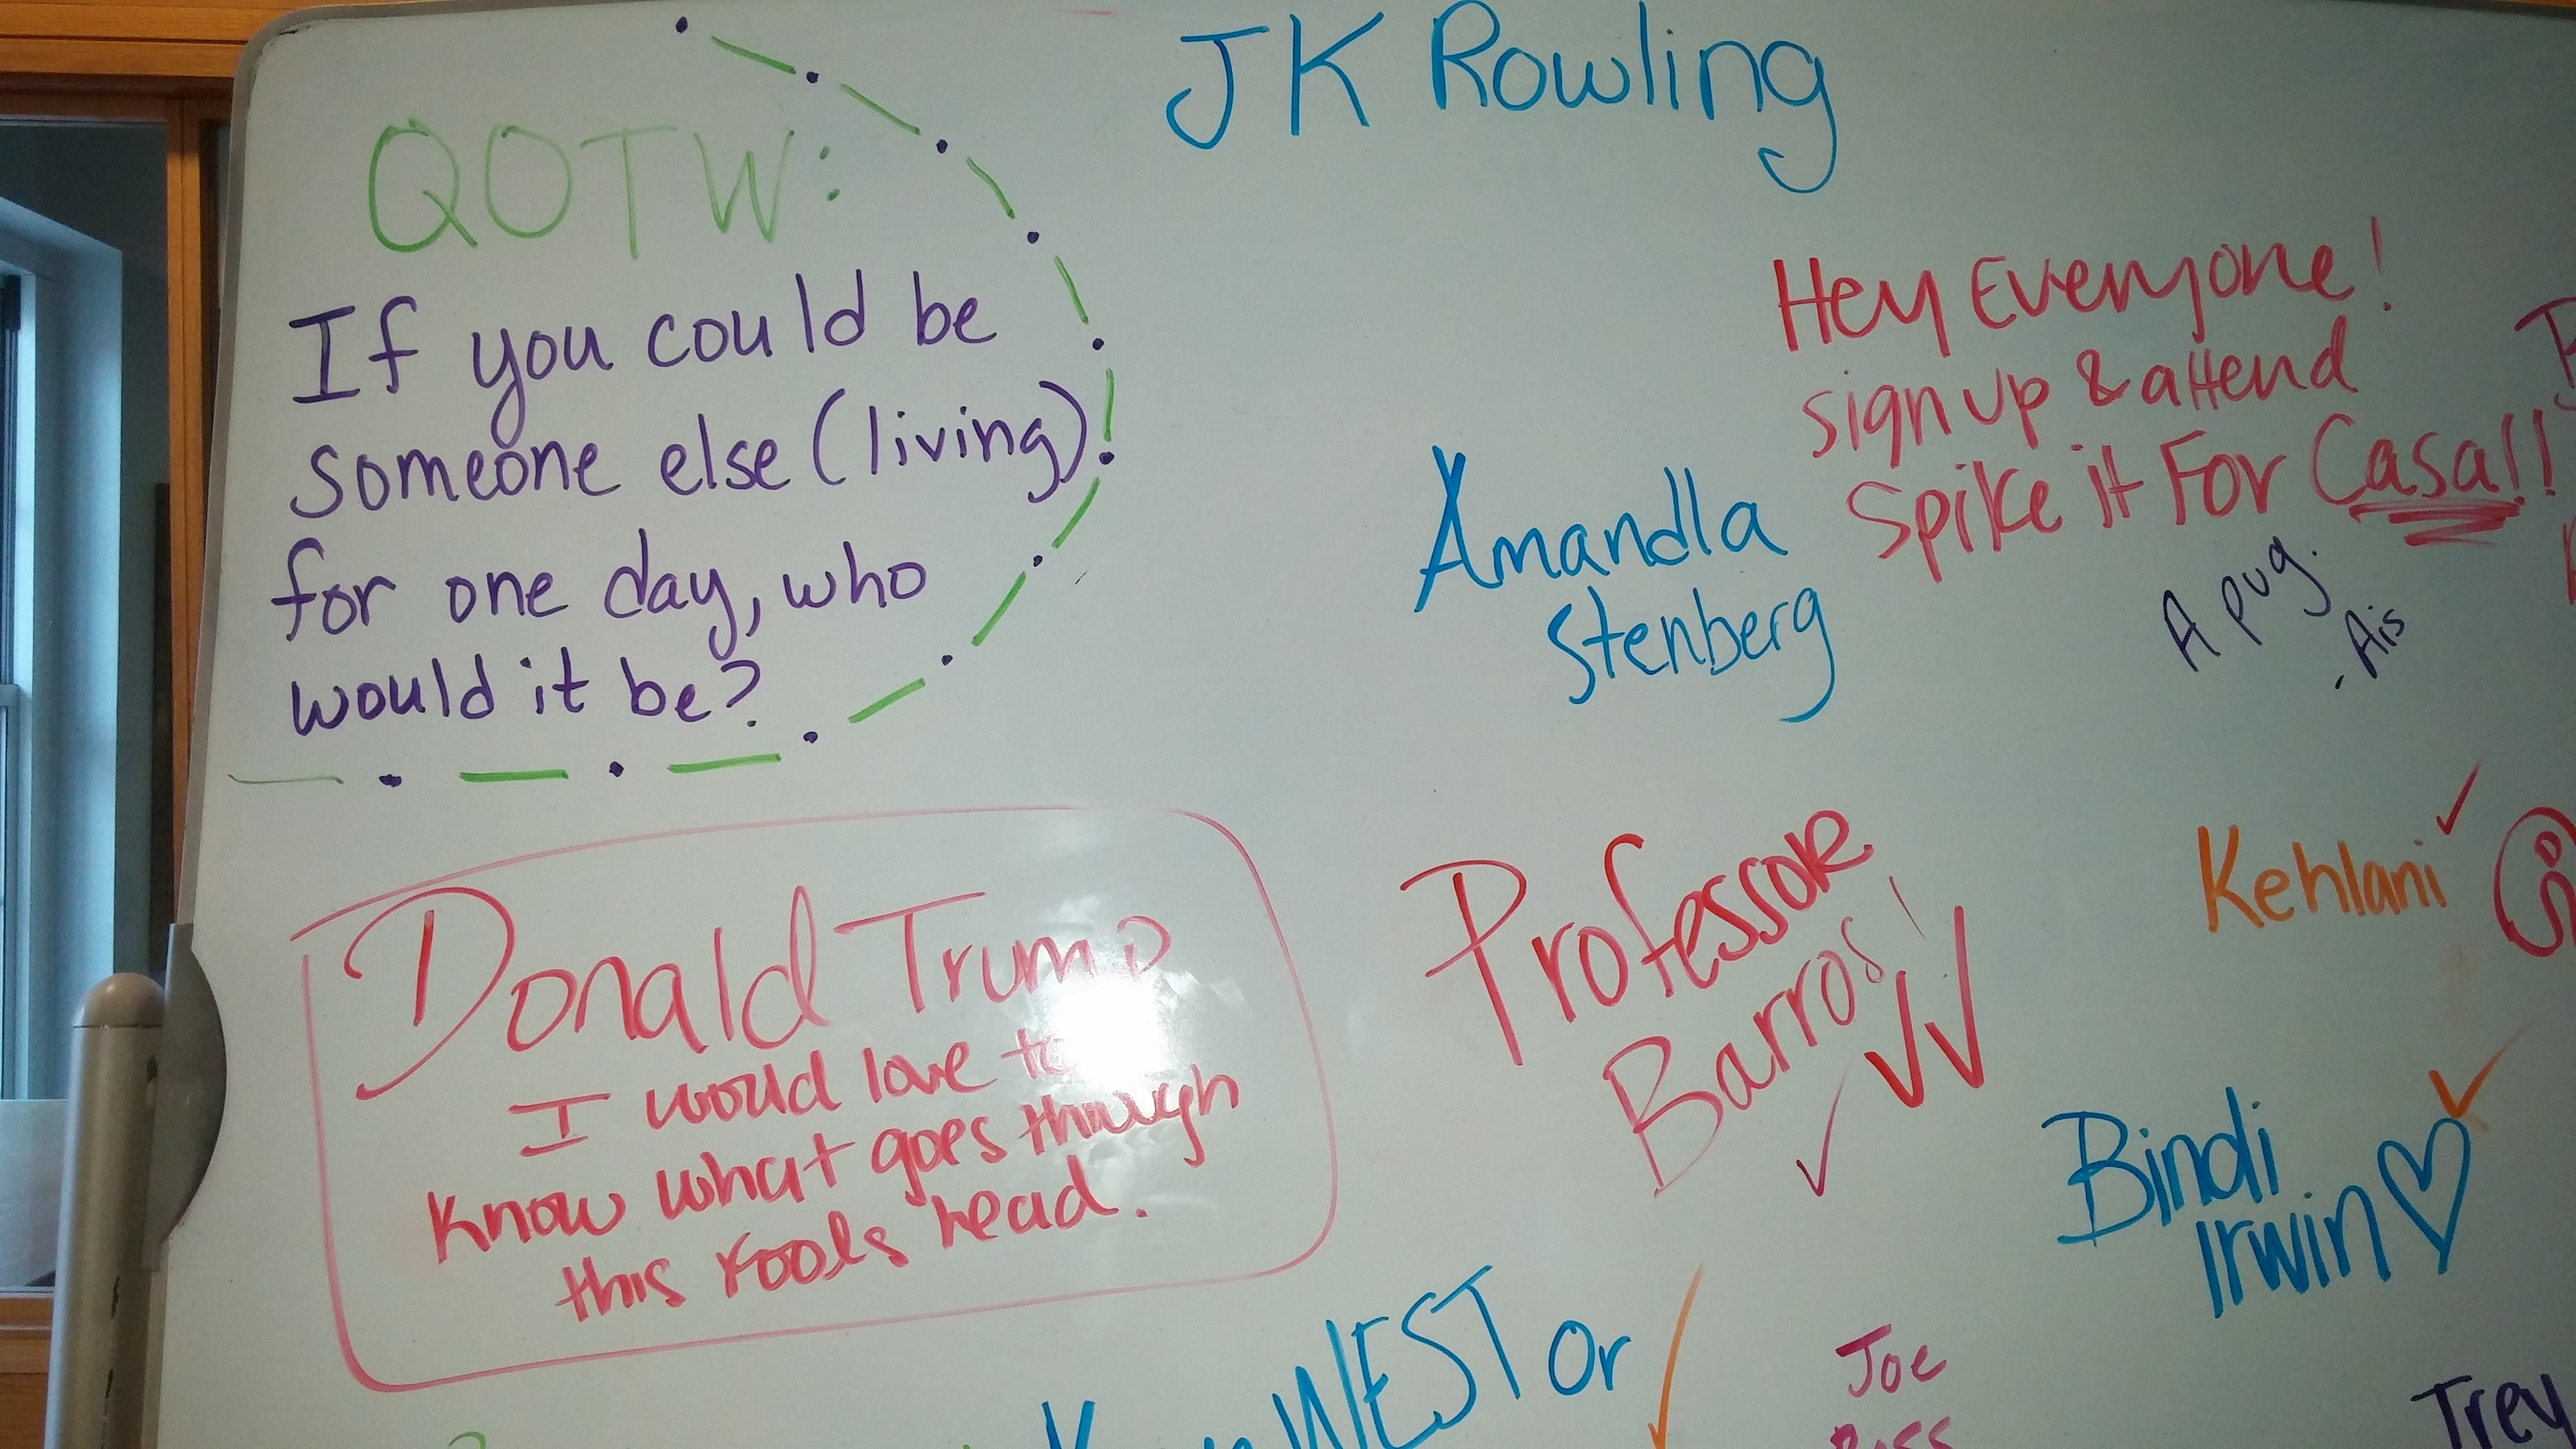 QOTW:
If you could be
someone else (living)
for one day, who
would it be?
JK Rowling
Hey Everyone!
sign up & attend
Spike it For Casa!!
Amandla
Stenberg
A pug.
- Ais
Donald Trump
I would love to
know what goes through
this fools head.
Professor
Barros!
Kehlani
Bindi
Irwin
WEST or
Joe
Trey